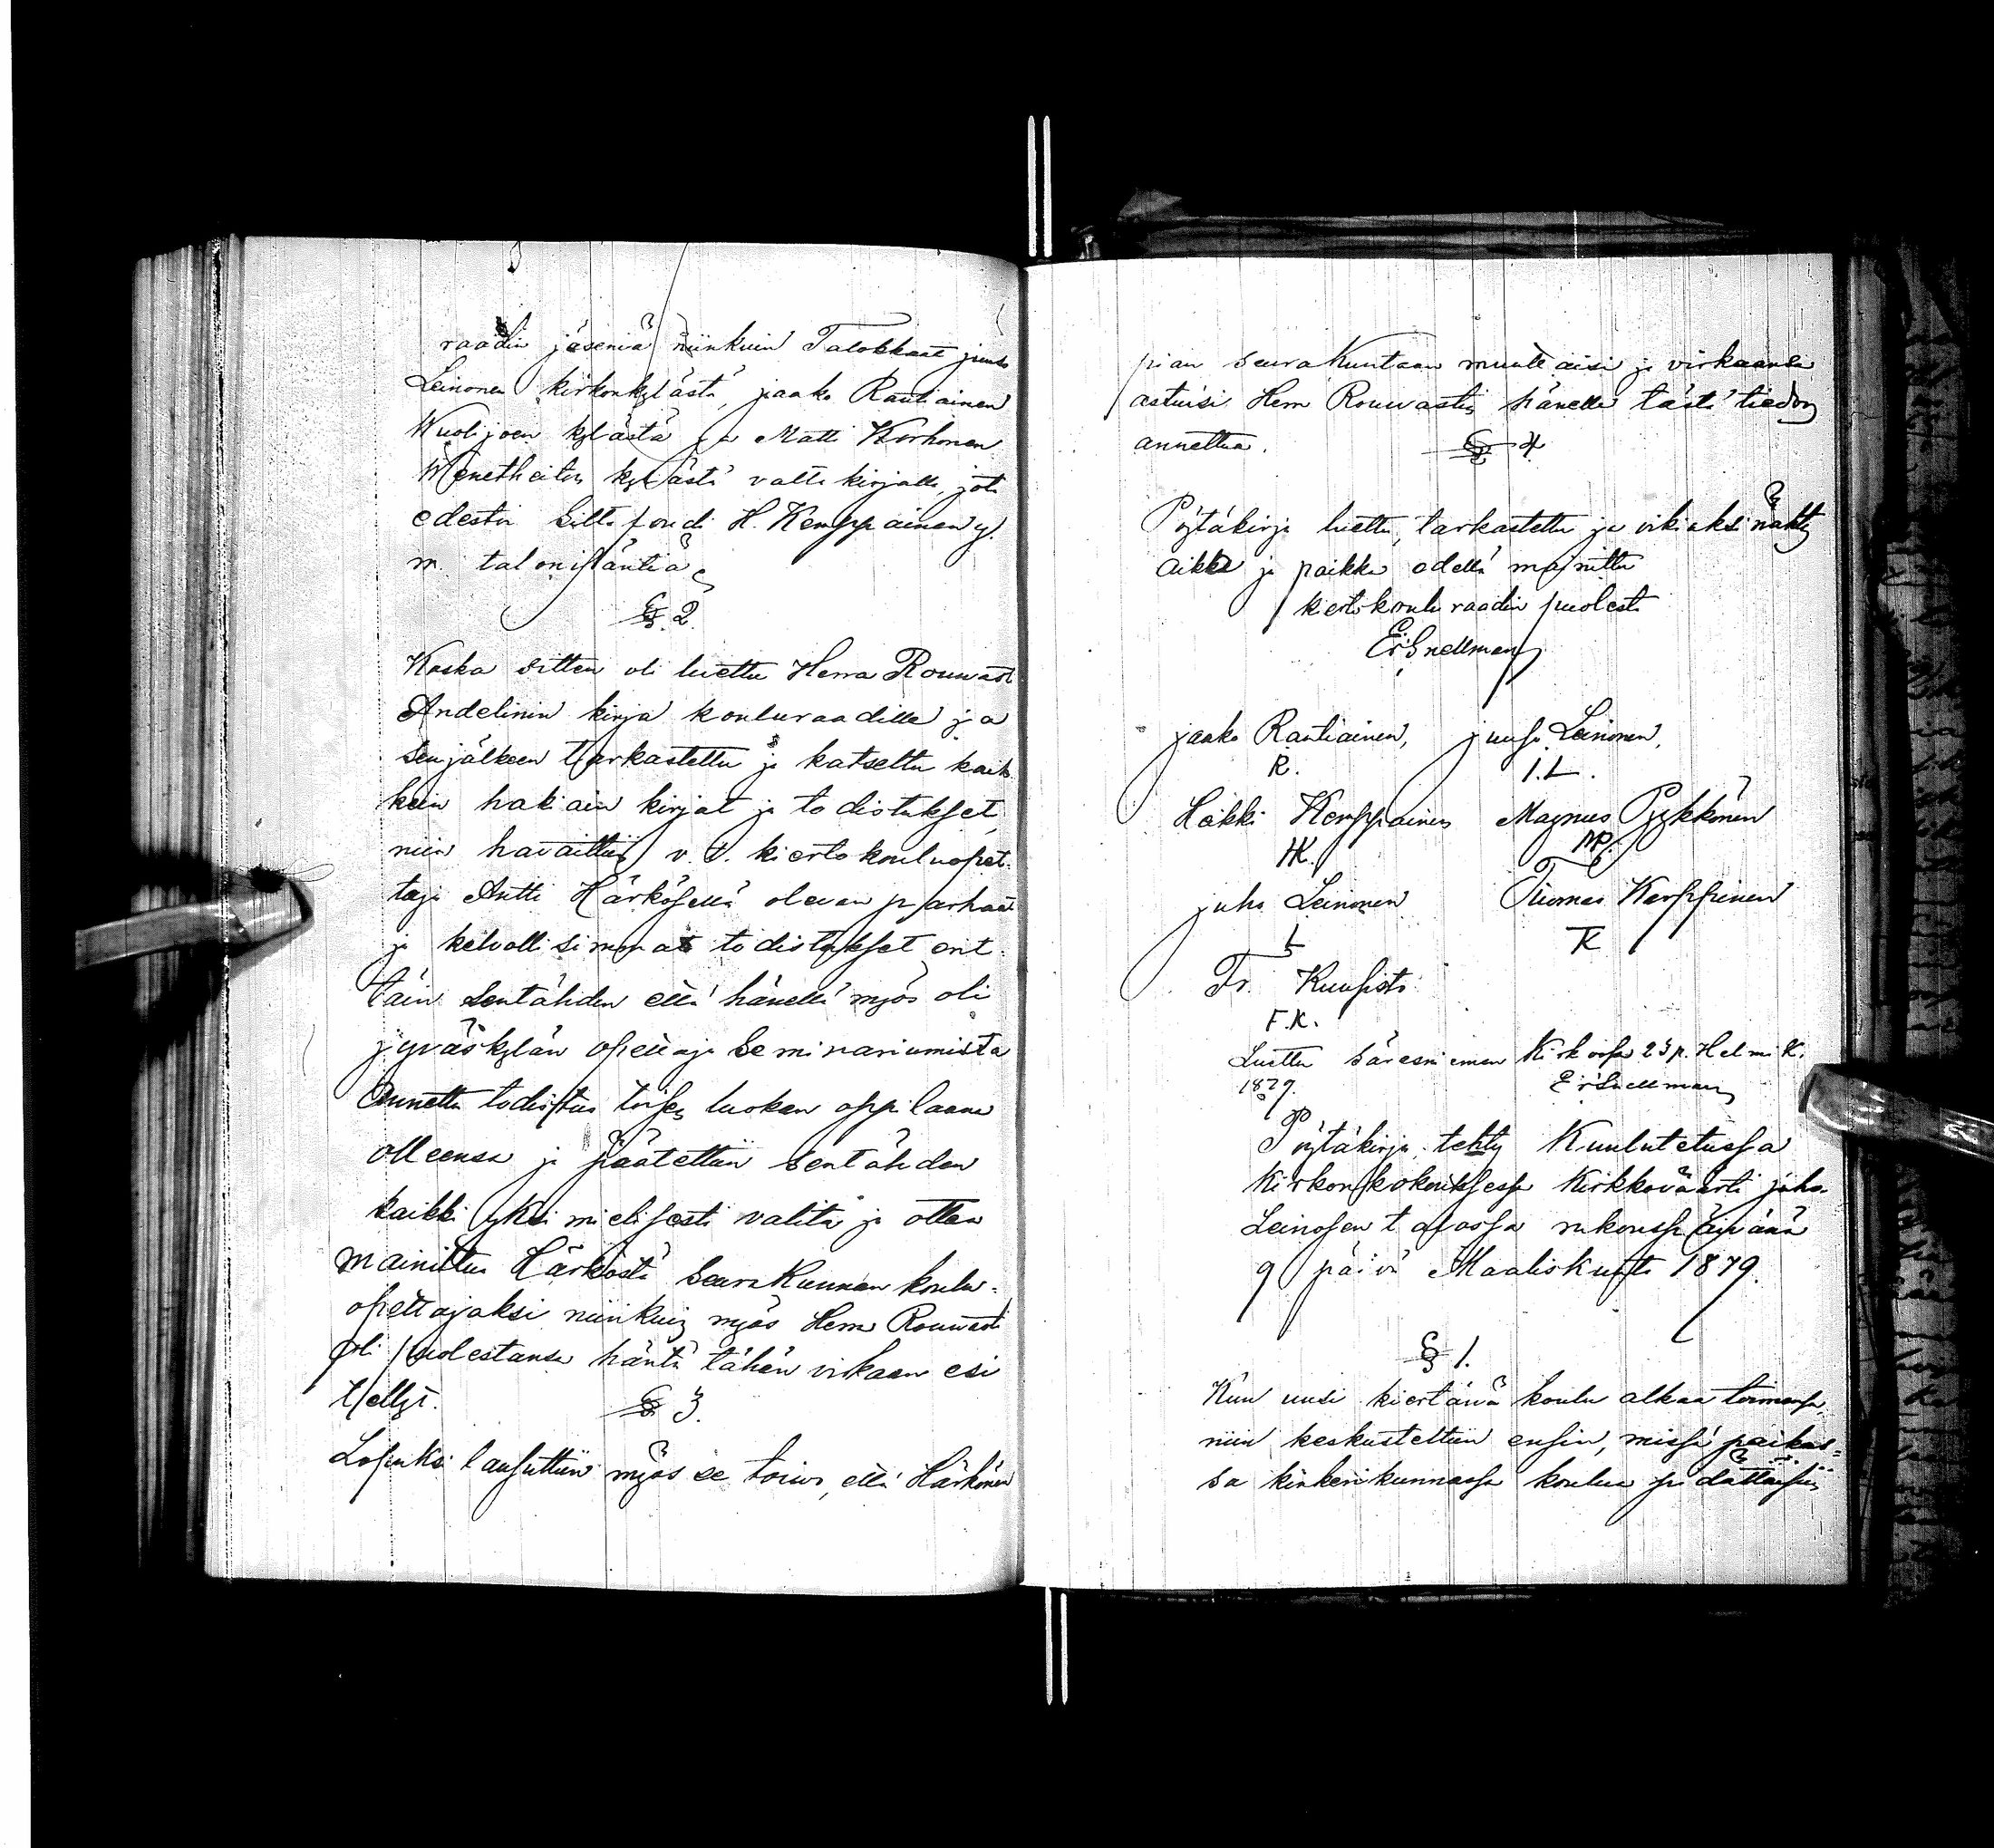 raadin jäseniä niinkuin Talokkaat juuso
Leinonen kirkonkylästä, jaako Rautiainen
Wuolijoen kylästä ja Matti Korhonen
Wenetheiton kylästä valta kirjalla, jota
edestä H. Kemppainen y.
m. talonisäntiä
§ 2.
Koska sitten oli luettu Herra Rouwasti
Andelinin kirja kouluraadille ja
senjälkeen tarkastettu ja katsottu kaik
kein hakiain kirjat ja todistukset,
niin havaittiin v. t. kiertokouluopet-
taja Antti Härkösellä olevan parhaat
ja kelvollisimmat todistukset ent-
täin sentähden että hänellä myös oli
jyväskylän opettaja Seminariumista
Annettu todistus toisen luokan oppilaana
olleensa ja päätettiin sentähden
kaikki yksimielisesti valita ja ottaa
mainittu Härköstä Seurakunnan koulu-
opettajaksi niinkuin myös Herra Rouwasti
oli puolestansa häntä tähän virkaan esi
tellyt.
§ 3.
Lopuksi lausuttiin myös se toivo, että Härkönen
pian seurakuntaan muuttaisi ja virkaansa
astuisi Herra Rouwastin hänelle tästä tiedon
annettua.
§ 4
Pöytäkirja luettu, tarkastettu ja oikiaksi nähty
aikka ja paikka edellä mainittu
kiertokoulu raadin puolesta
Er Snellman
jaako Rautiainen, juuso Leinonen,
R. I.L.
Heikki Kemppainen Magnus Pyykkönen
HK. MP.
juho Leinonen Tuomas Karppinen
L TK
Fr. Kuusisto
F.K.
Luettu Säresniemen Kirkossa 23 p. Helmik.
1879. Er Snellman
Pöytäkirja, tehty Kuulutetussa
Kirkonkokouksessa Kirkkoväärti juho
Leinosen talossa rukouspäivänä
9 päivä Maaliskuuta 1879.
§ 1.
Kun uusi kiertävä koulu alkaa toimensa
niin keskusteltiin ensin, missä paikas=
sa kinkerikunnassa koulua pidättäisiin